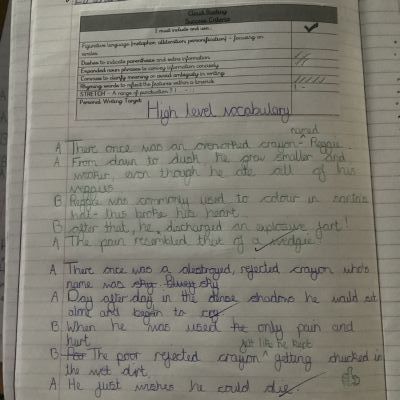 Cloud Busting
Success Criteria
I must include and use...
Figurative language (metaphor, alliteration, personification) – focusing on similes
Dashes to indicate parenthesis and extra information
Expanded noun phrases to convey information concisely
Commas to clarify meaning or avoid ambiguity in writing
Rhyming words to reflect the features within a limerick
STRETCH – A range of punctuation ? !
Personal Writing Target:
High level vocabulary
named
A There once was an overworked crayon - Reggie.
A From dawn to dusk he grew smaller and
weaker, even though he ate all of his
veggies
B Reggie was commonly used to colour in
hat - this broke his heart.
B after that, he discharged an explosive fart!
A The pain resembled that of a wedgie!
A There once was a destroyed, rejected crayon who's
name was shy Bluey sky
A Day after day in the dense shadows he would sit
alone and began to cry
B When he was used he only pain and
hurt
felt like he kept
B For The poor rejected crayon ^ getting chucked in
the wet dirt.
A He just wishes he could die.